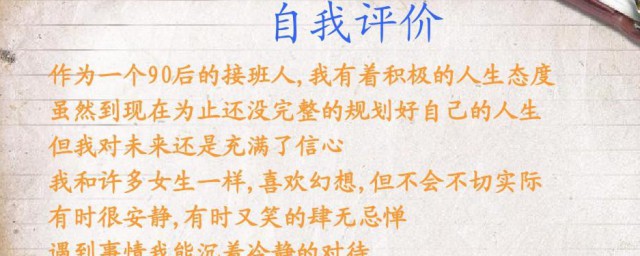 自我评价
作为一个90后的接班人,我有着积极的人生态度
虽然到现在为止还没完整的规划好自己的人生
但我对未来还是充满了信心
我和许多女生一样,喜欢幻想,但不会不切实际
有时很安静,有时又笑的肆无忌惮
遇到事情我能沉着冷静的对待